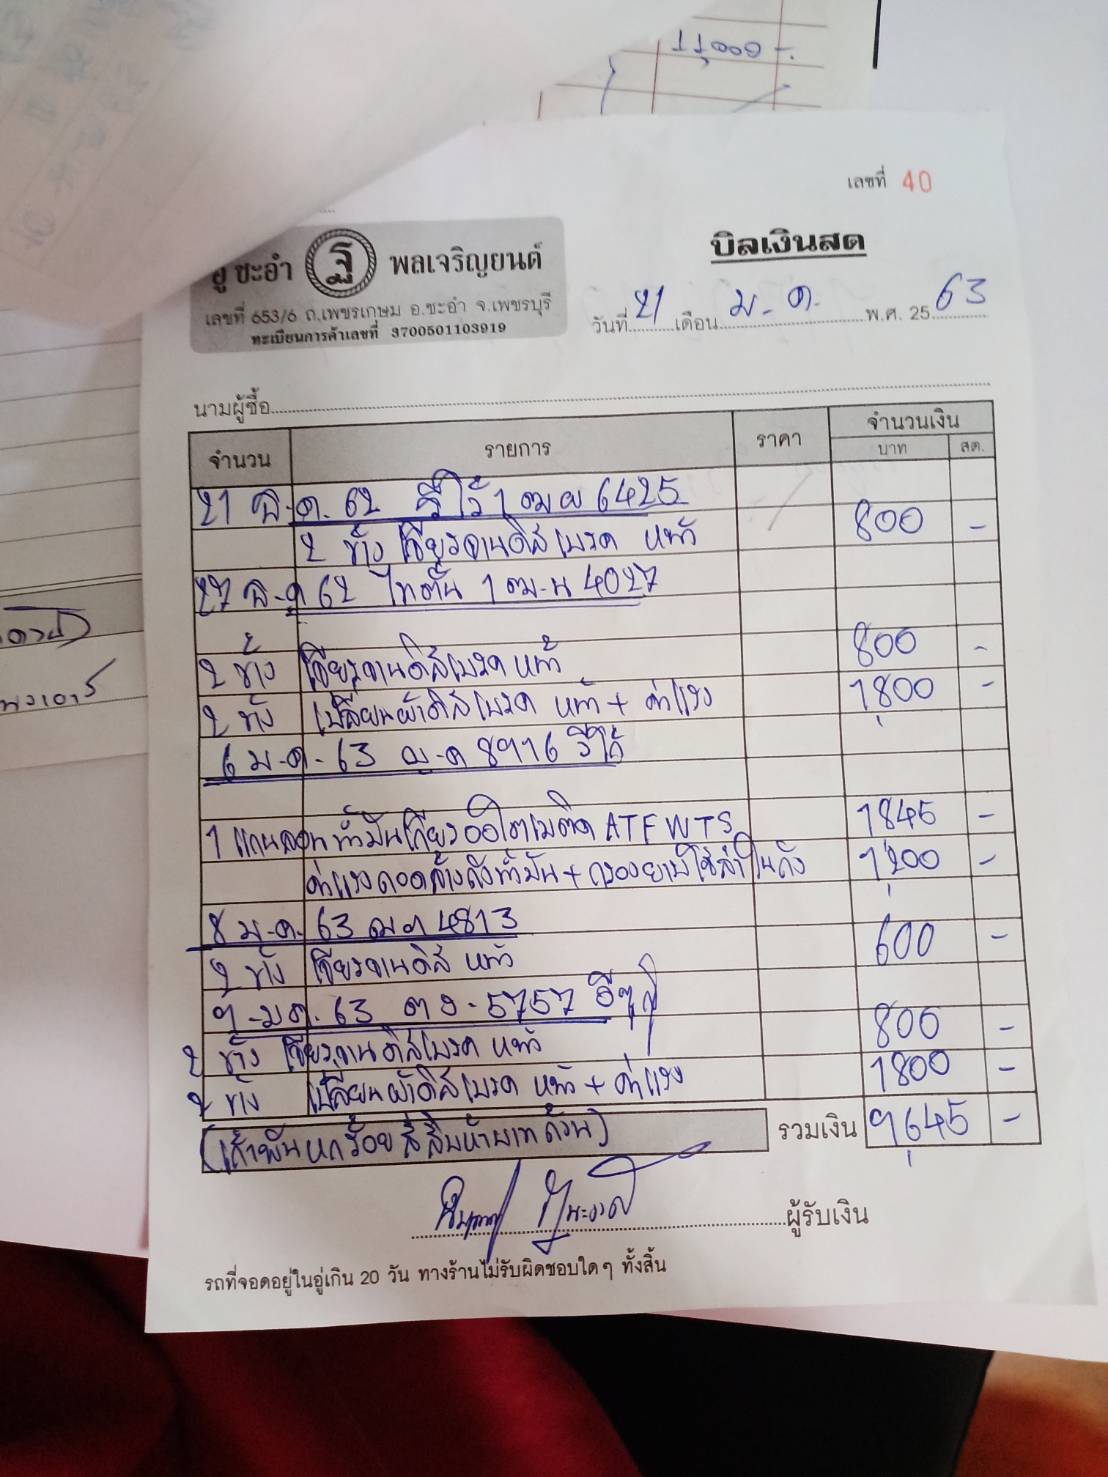 11,000 -
เลขที่ 40
อู่ ชะอำ ฐ พลเจริญยนต์
เลขที่ 653/6 ถ.เพชรเกษม อ.ชะอำ จ.เพชรบุรี
ทะเบียนการค้าเลขที่ 3700501103919
บิลเงินสด
วันที่ 21 เดือน ม.ค. พ.ศ. 2563
นามผู้ซื้อ
จำนวน รายการ ราคา จำนวนเงิน
บาท สต.
21 ธ.ค. 62 วีโก้ 1ฒผ 6425
2 ข้าง เจียรจานดิสเบรค หน้า 800 -
27 ธ.ค 62 ไทตั้น 1ฒน 4027
2 ข้าง เจียรจานดิสเบรค หน้า 800 -
2 ข้าง เปลี่ยนผ้าดิสเบรค หน้า + ค่าแรง 1,800 -
6 ม.ค. 63 8916 วีโก้
1 แกนลอน น้ำมันเกียรออโตเมติค ATF WTS 1845 -
ค่าแรงถอดล้างถังน้ำมัน + กรอง ในถัง 1,200 -
8 ม.ค. 63 ฌก 4813
2 ข้าง เจียรจานดิส หน้า 600 -
9 ม.ค. 63 5757 อีซูซุ
2 ข้าง เจียรจานดิสเบรค หน้า 800 -
2 ข้าง เปลี่ยนผ้าดิสเบรค หน้า + ค่าแรง 1800 -
(เก้าพันหกร้อยสี่สิบห้าบาทถ้วน) รวมเงิน 9,645 -
ผู้รับเงิน
รถที่จอดอยู่ในอู่เกิน 20 วัน ทางร้านไม่รับผิดชอบใดๆ ทั้งสิ้น